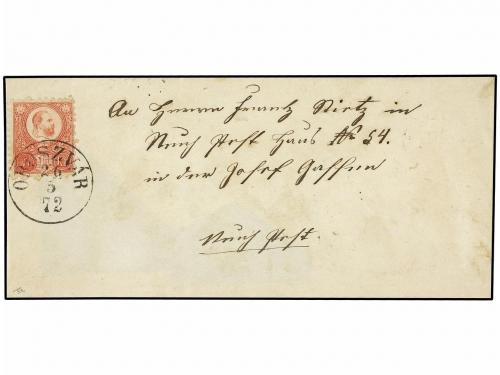 An Herrn Frantz Nirtz in
Neuj Pest Haus No 54.
in der Josef Gassen
Neuj Pest.
OROSZVÁR
26
5
72